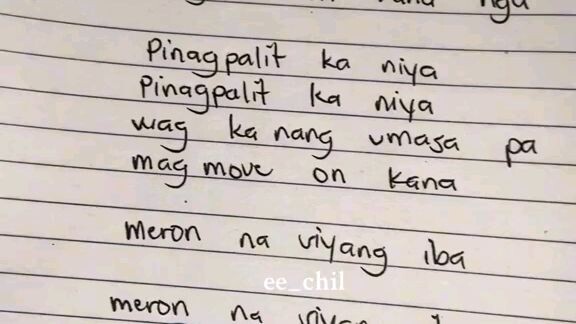 nga
Pinagpalit ka niya
Pinagpalit ka niya
wag ka nang umasa pa
mag move on kana
meron na siyang iba
ee_chil
meron na